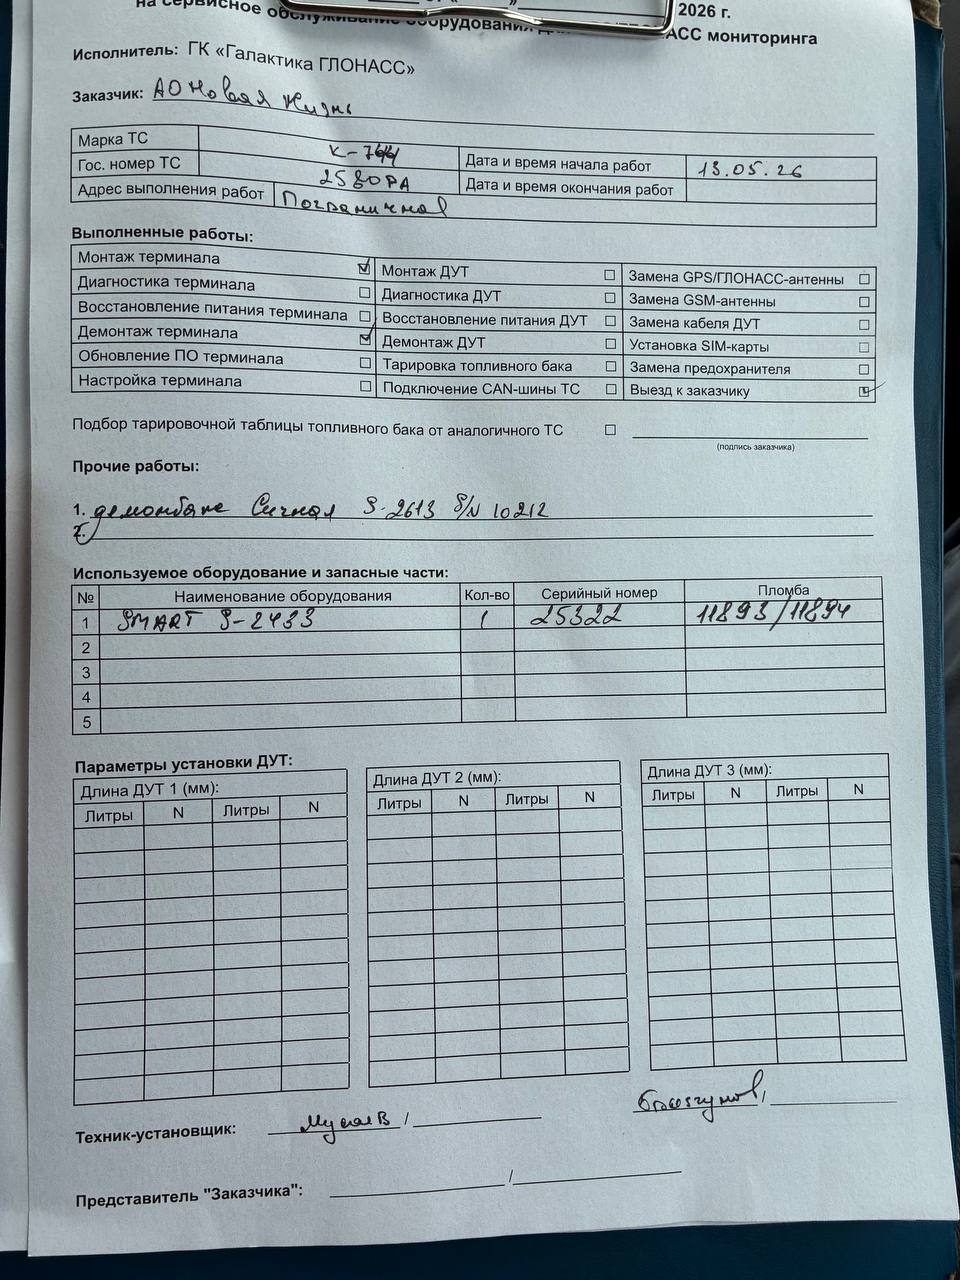 на сервисное обслуживание оборудования 2026 г.
АСС мониторинга
Исполнитель: ГК «Галактика ГЛОНАСС»
Заказчик: АО Новая Жизнь
Марка ТС К-744
Гос. номер ТС 2580РА
Дата и время начала работ 13.05.26
Дата и время окончания работ
Адрес выполнения работ Пограничное
Выполненные работы:
Монтаж терминала ☑ Монтаж ДУТ ☐ Замена GPS/ГЛОНАСС-антенны ☐
Диагностика терминала ☐ Диагностика ДУТ ☐ Замена GSM-антенны ☐
Восстановление питания терминала ☐ Восстановление питания ДУТ ☐ Замена кабеля ДУТ ☐
Демонтаж терминала ☑ Демонтаж ДУТ ☐ Установка SIM-карты ☐
Обновление ПО терминала ☐ Тарировка топливного бака ☐ Замена предохранителя ☐
Настройка терминала ☐ Подключение CAN-шины ТС ☐ Выезд к заказчику ☑
Подбор тарировочной таблицы топливного бака от аналогичного ТС ☐
(подпись заказчика)
Прочие работы:
1. Сигнал S-2613 S/N 10212
2.
Используемое оборудование и запасные части:
№ Наименование оборудования Кол-во Серийный номер Пломба
1 SMART S-2433 1 25322 11893/11894
2
3
4
5
Параметры установки ДУТ:
Длина ДУТ 1 (мм): Длина ДУТ 2 (мм): Длина ДУТ 3 (мм):
Литры N Литры N Литры N Литры N Литры N Литры N
Техник-установщик: /
/
Представитель "Заказчика": /